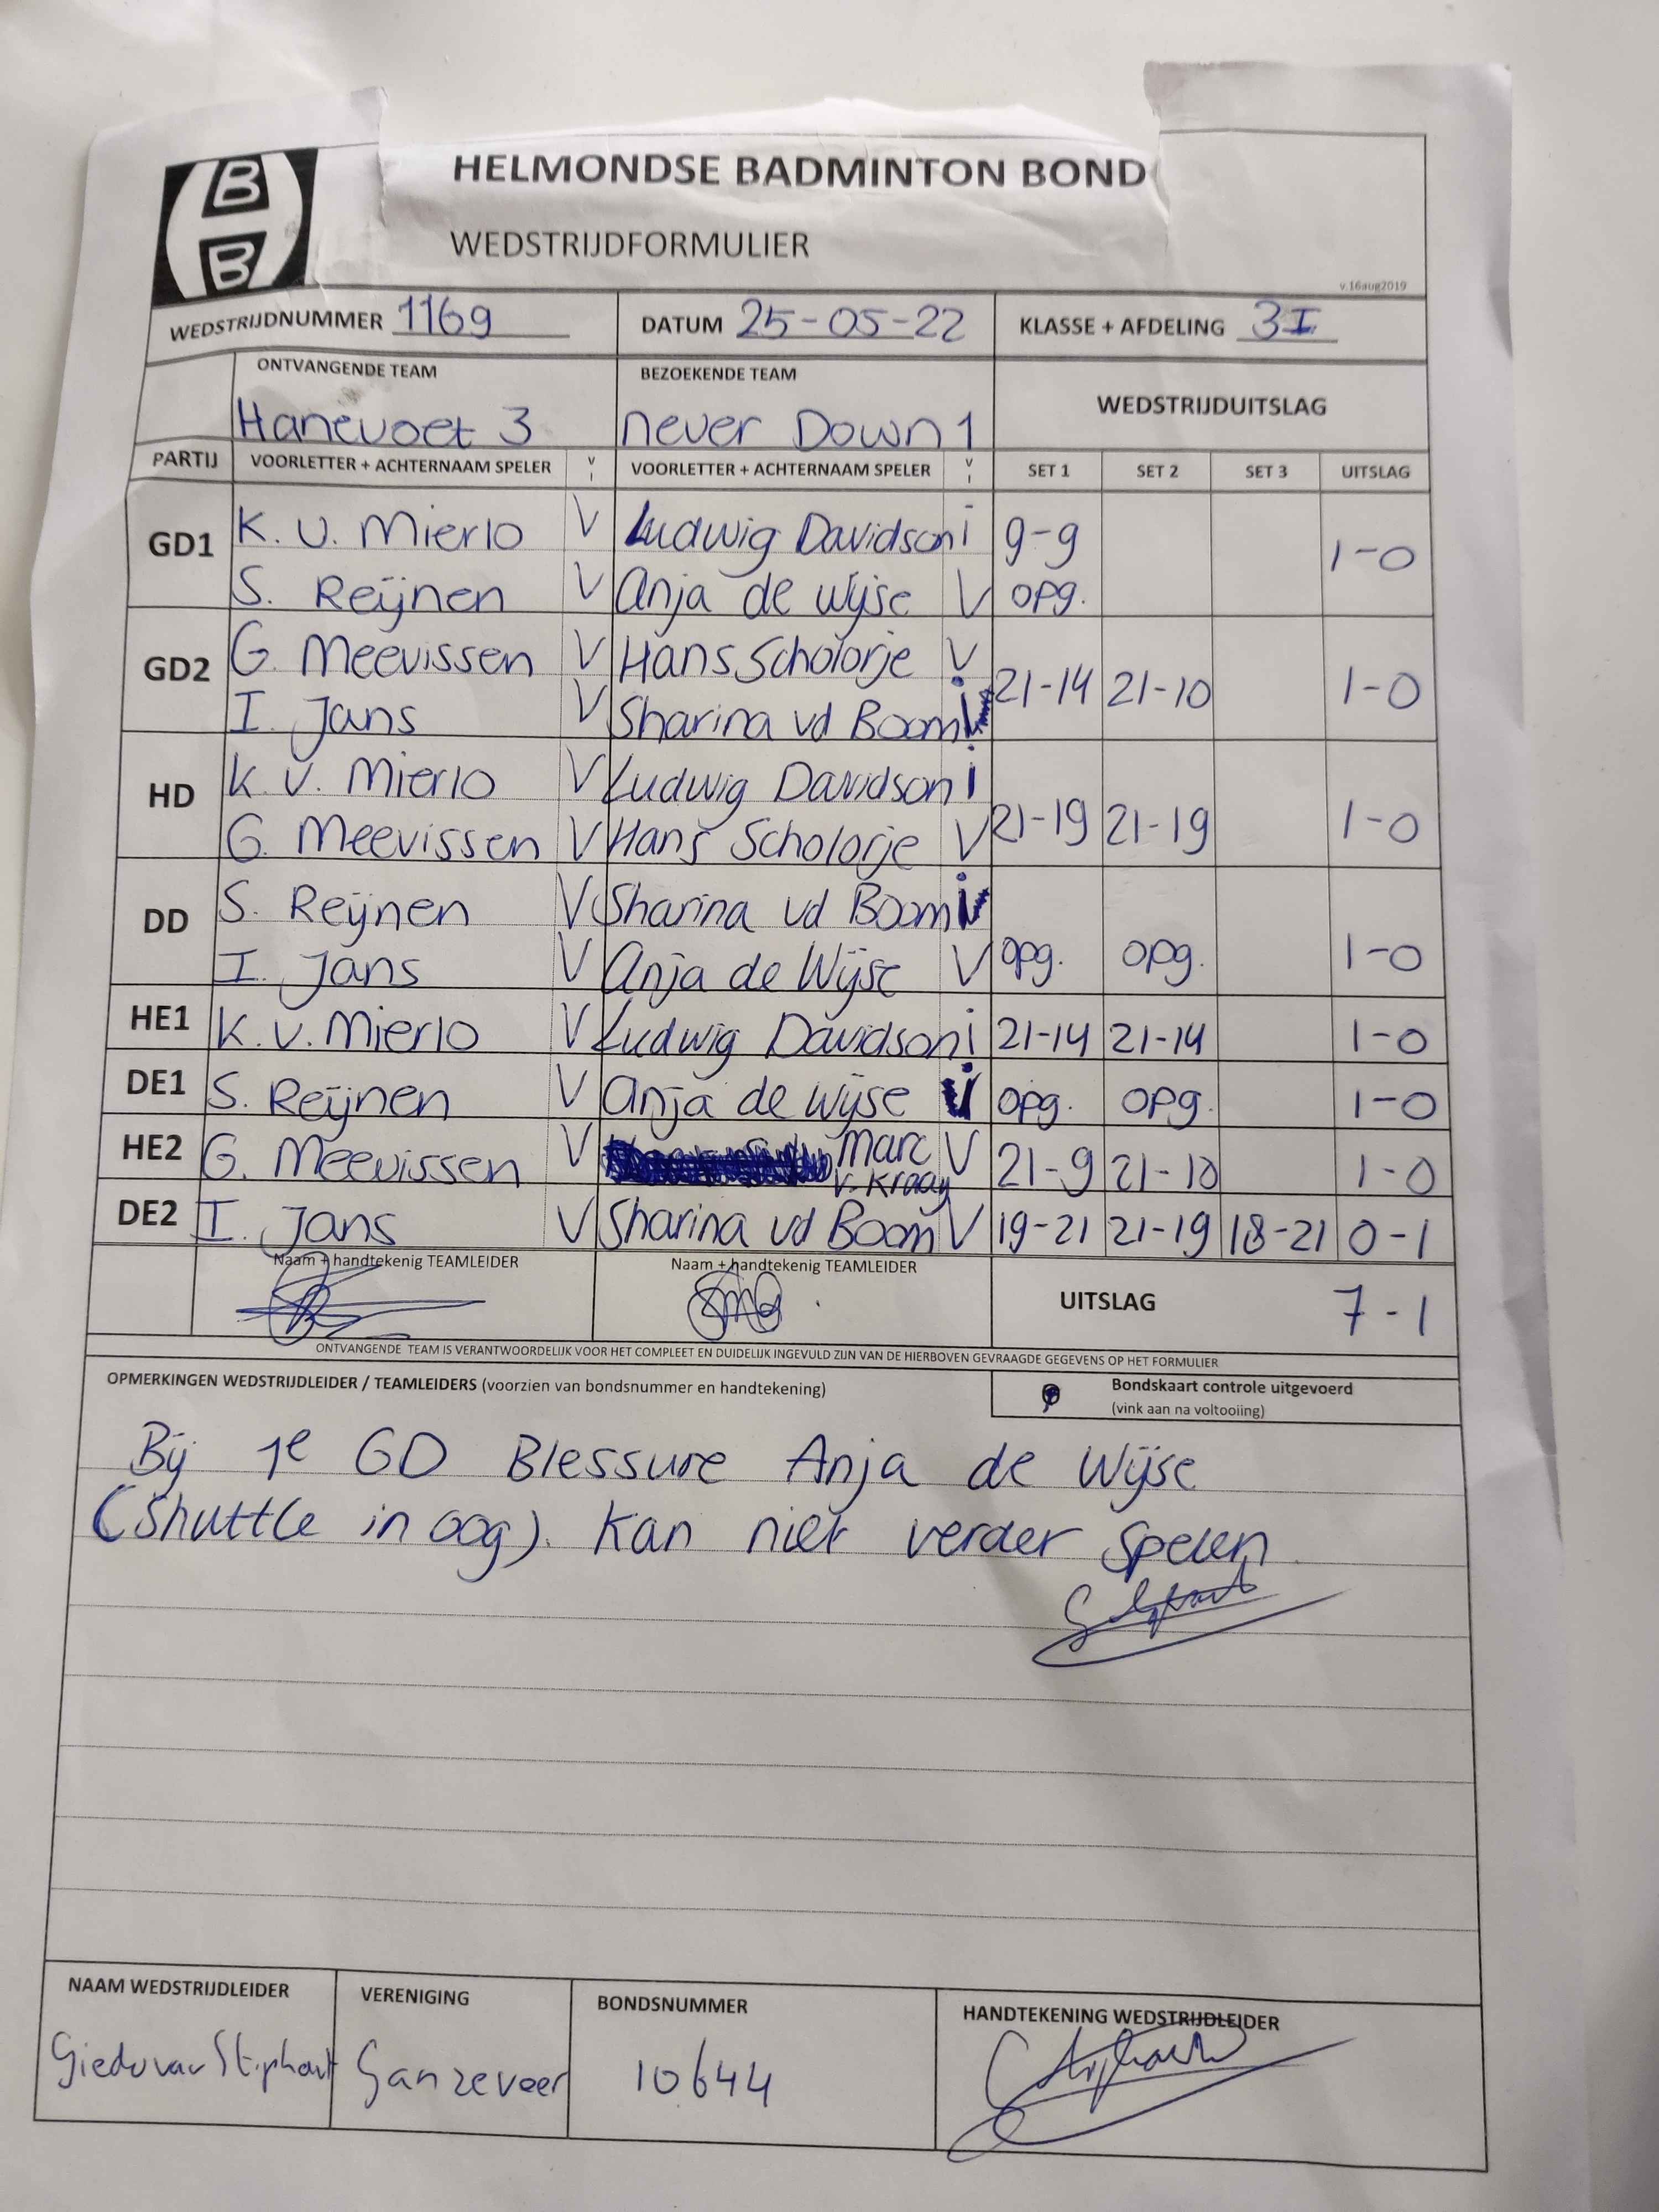 B
B
HELMONDSE BADMINTON BOND
WEDSTRIJDFORMULIER
v.16aug2019
WEDSTRIJDNUMMER 1169 DATUM 25-05-22 KLASSE + AFDELING 3I
ONTVANGENDE TEAM BEZOEKENDE TEAM WEDSTRIJDUITSLAG
Hanevoet 3 never Down 1
PARTIJ VOORLETTER + ACHTERNAAM SPELER V I VOORLETTER + ACHTERNAAM SPELER V I SET 1 SET 2 SET 3 UITSLAG
GD1 K. v. Mierlo V Ludwig Davidson i 9-9 1-0
S. Reijnen V Anja de Wijse V opg.
GD2 G. Meevissen V Hans Scholorje V 21-14 21-10 1-0
I. Jans V Sharina vd Boom i
HD K. v. Mierlo V Ludwig Davidson i 21-19 21-19 1-0
G. Meevissen V Hans Scholorje V
DD S. Reijnen V Sharina vd Boom i
I. Jans V Anja de Wijse V opg. opg. 1-0
HE1 K. v. Mierlo V Ludwig Davidson i 21-14 21-14 1-0
DE1 S. Reijnen V Anja de Wijse i opg. opg. 1-0
HE2 G. Meevissen V Marc v. Kraay V 21-9 21-10 1-0
DE2 I. Jans V Sharina vd Boom V 19-21 21-19 18-21 0-1
Naam + handtekenig TEAMLEIDER Naam + handtekenig TEAMLEIDER
UITSLAG 7-1
ONTVANGENDE TEAM IS VERANTWOORDELIJK VOOR HET COMPLEET EN DUIDELIJK INGEVULD ZIJN VAN DE HIERBOVEN GEVRAAGDE GEGEVENS OP HET FORMULIER
OPMERKINGEN WEDSTRIJDLEIDER / TEAMLEIDERS (voorzien van bondsnummer en handtekening) Bondskaart controle uitgevoerd
(vink aan na voltooiing)
Bij 1e GD Blessure Anja de Wijse
(Shuttle in oog). Kan niet verder spelen
NAAM WEDSTRIJDLEIDER VERENIGING BONDSNUMMER HANDTEKENING WEDSTRIJDLEIDER
van Ganzeveer 10644